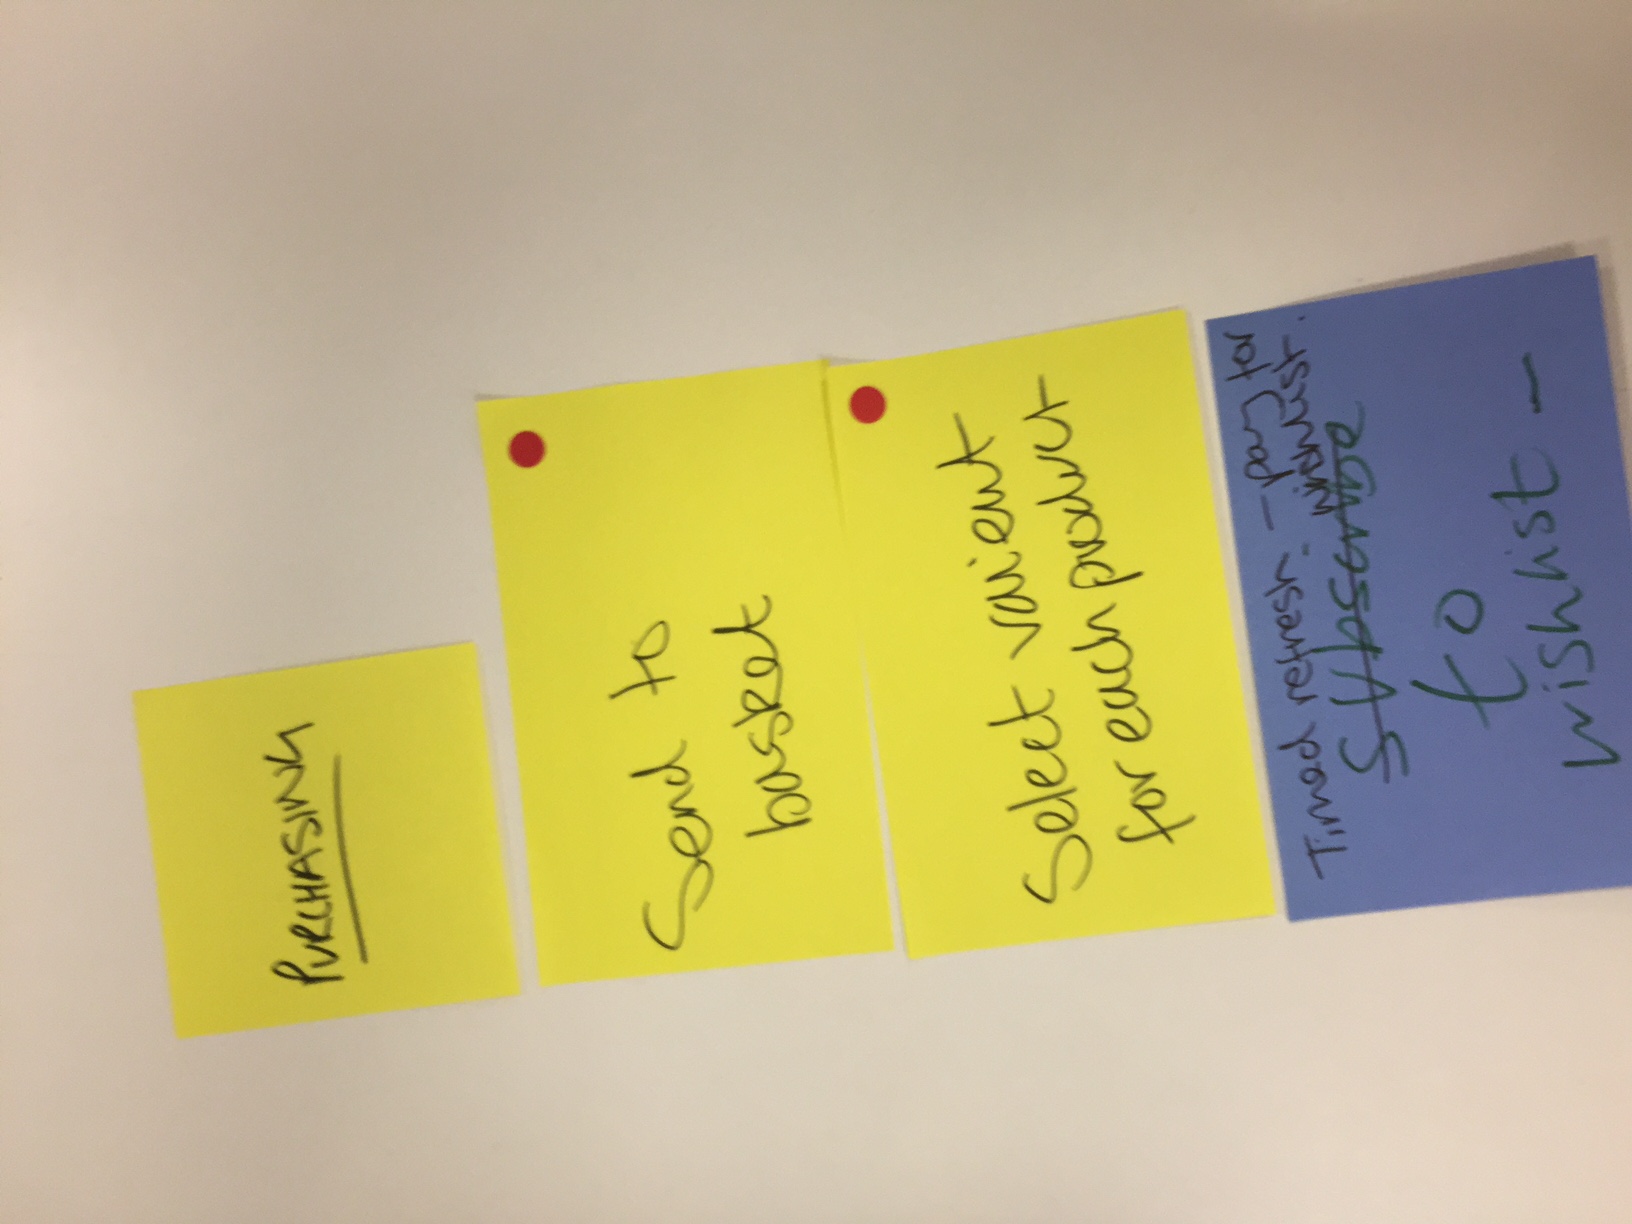 PURCHASING
Send to
basket
Select vaient
for each product
Timed refresh - pay for
wishlist.
Subscribe
to
wishlist -